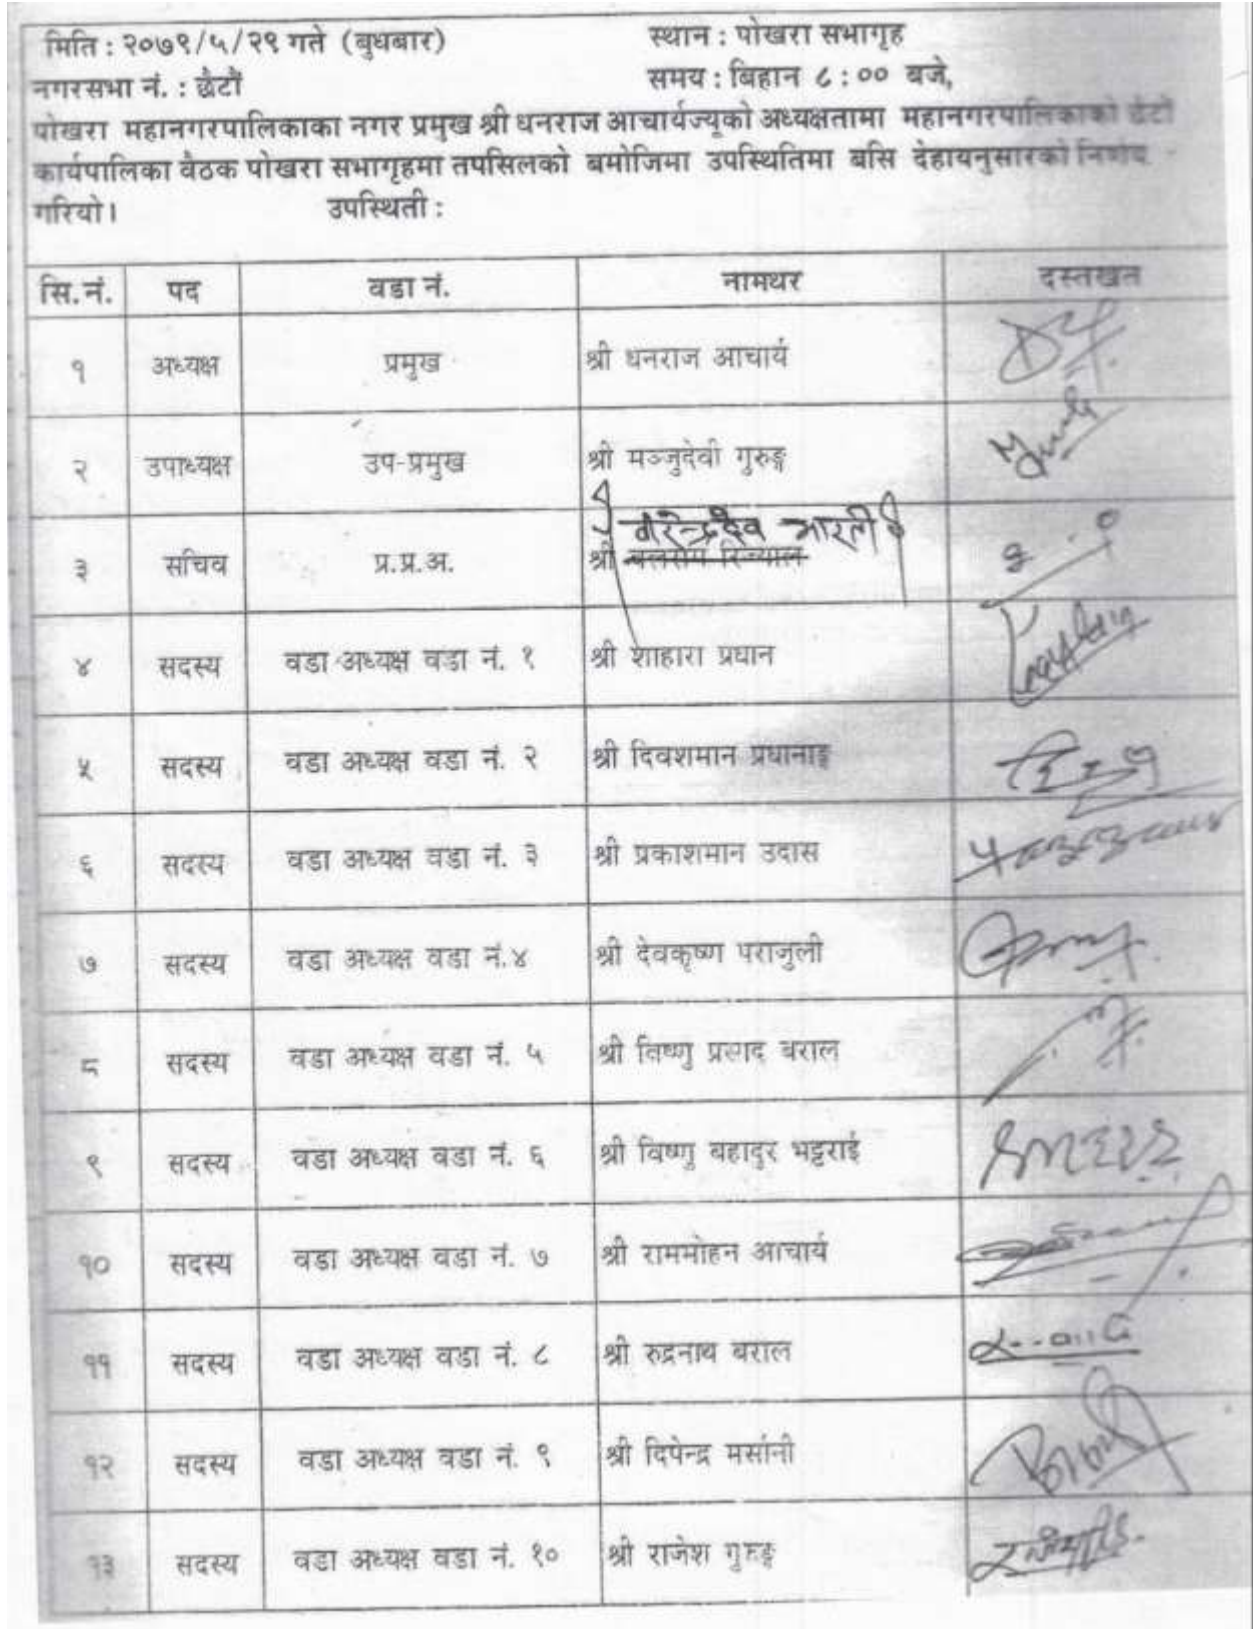 मिति : २०७९/५/२९ गते (बुधबार) स्थान : पोखरा सभागृह
नगरसभा नं. : छैटौं समय : बिहान ८ : ०० बजे,
पोखरा महानगरपालिकाका नगर प्रमुख श्री धनराज आचार्यज्यूको अध्यक्षतामा महानगरपालिकाको छैटौ
कार्यपालिका वैठक पोखरा सभागृहमा तपसिलको बमोजिमा उपस्थितिमा बसि देहायनुसारको निर्णय
गरियो। उपस्थिती :
सि.नं. पद वडा नं. नामथर दस्तखत
१ अध्यक्ष प्रमुख श्री धनराज आचार्य
२ उपाध्यक्ष उप-प्रमुख श्री मञ्जुदेवी गुरुङ्ग
३ सचिव प्र.प्र.अ. श्री
४ सदस्य वडा अध्यक्ष वडा नं. १ श्री शाहारा प्रधान
५ सदस्य वडा अध्यक्ष वडा नं. २ श्री दिवशमान प्रधानाङ्ग
६ सदस्य वडा अध्यक्ष वडा नं. ३ श्री प्रकाशमान उदास
७ सदस्य वडा अध्यक्ष वडा नं.४ श्री देवकृष्ण पराजुली
८ सदस्य वडा अध्यक्ष वडा नं. ५ श्री विष्णु प्रसाद बराल
९ सदस्य वडा अध्यक्ष वडा नं. ६ श्री विष्णु बहादुर भट्टराई
१० सदस्य वडा अध्यक्ष वडा नं. ७ श्री राममोहन आचार्य
११ सदस्य वडा अध्यक्ष वडा नं. ८ श्री रुद्रनाथ बराल
१२ सदस्य वडा अध्यक्ष वडा नं. ९ श्री दिपेन्द्र मर्सानी
१३ सदस्य वडा अध्यक्ष वडा नं. १० श्री राजेश गुरुङ्ग